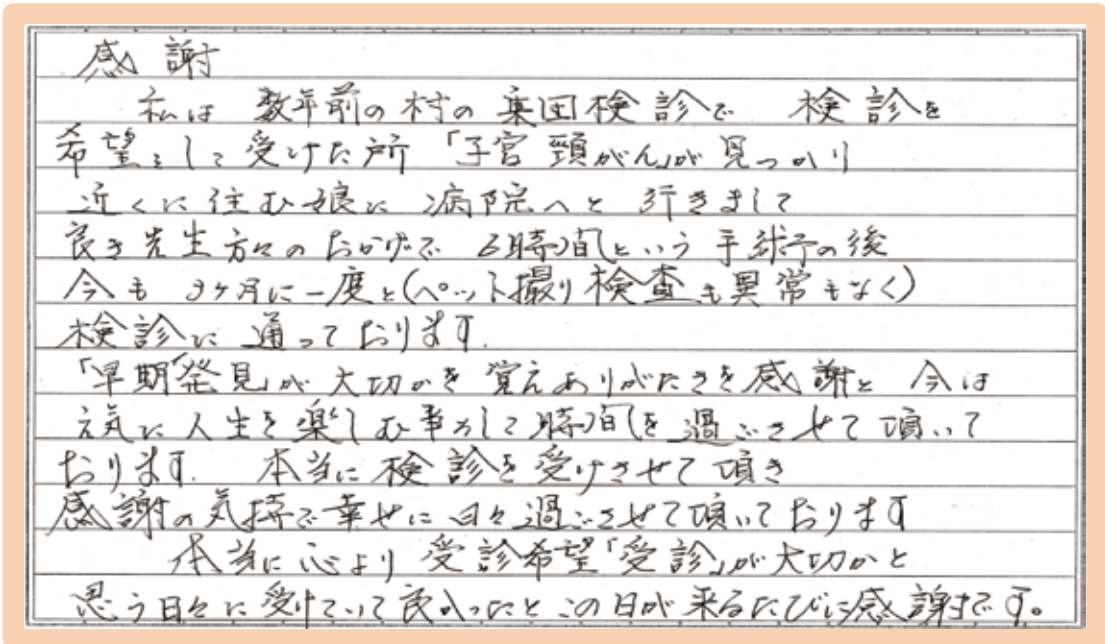 感謝
私は 数年前の村の集団検診で 検診を
希望をして受けた所「子宮頸がん」が見つかり
近くに住む娘に 病院へと 行きまして
良き先生方々のおかげで 6時間という手術の後
今も 3ヶ月に一度と(ペット撮り検査も異常もなく)
検診に通っております。
「早期発見」が大切かを覚えありがたさを感謝と 今は
元気に人生を楽しむ事かして時間を過ごさせて頂いて
おります。 本当に検診を受けさせて頂き
感謝の気持で幸せに日々過ごさせて頂いております
本当に心より受診希望「受診」が大切かと
思う日々に受けていて良かったとこの日が来るたびに感謝です。